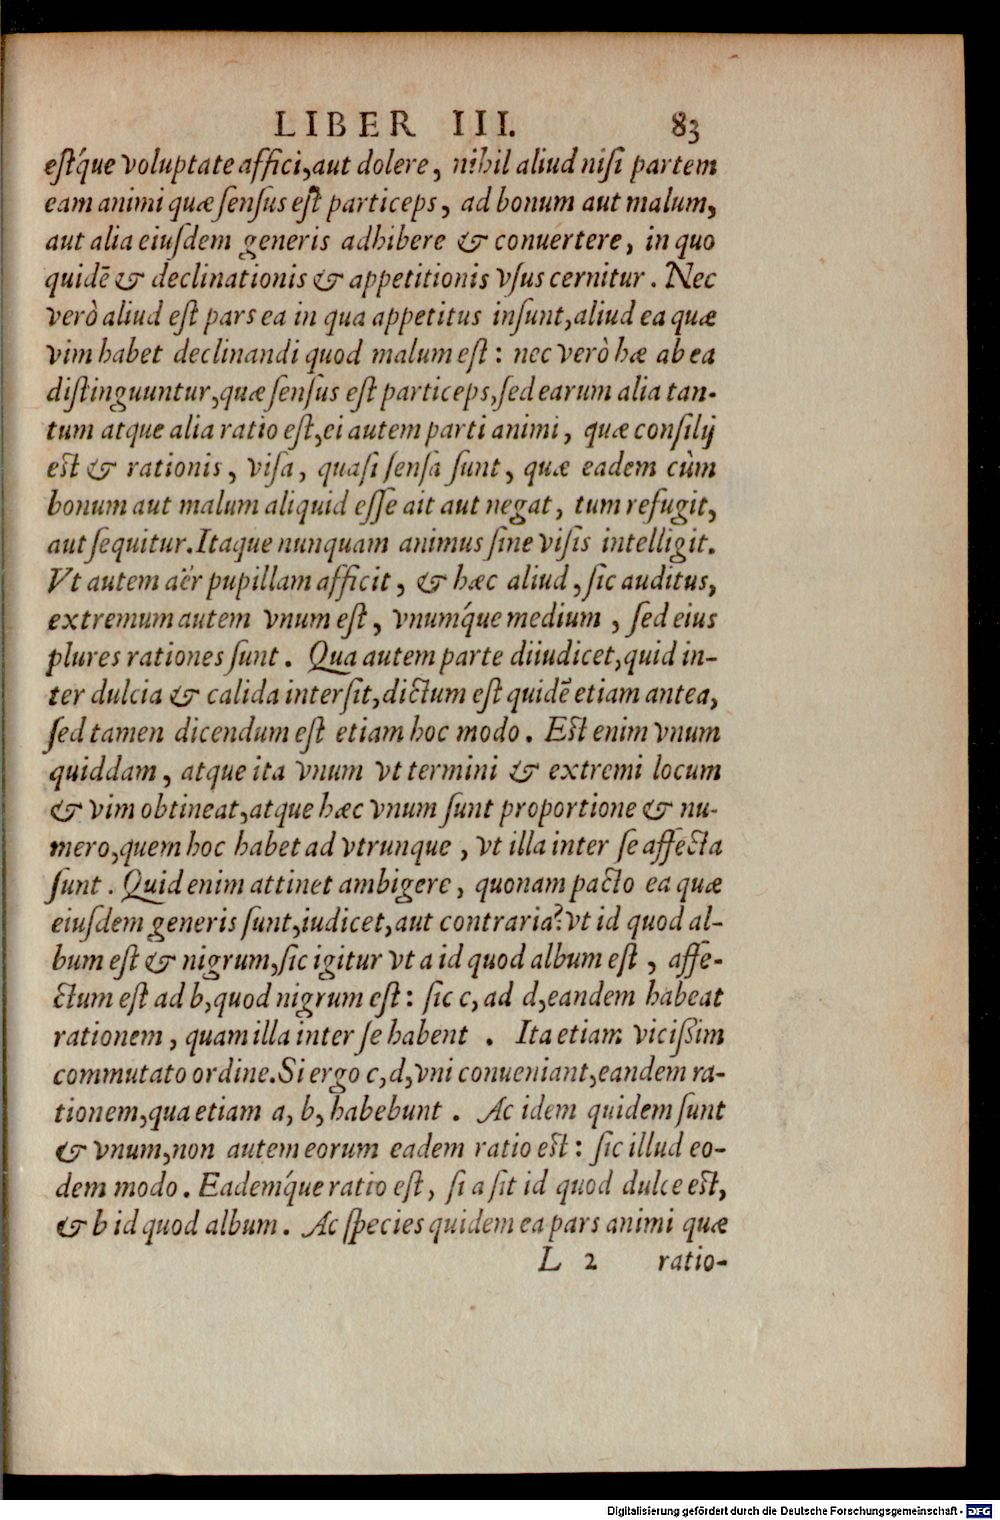 LIBER III. 83
estq́ue voluptate affici, aut dolere, nihil aliud nisi partem
eam animi quæ sensus est particeps, ad bonum aut malum,
aut alia eiusdem generis adhibere & conuertere, in quo
quidē & declinationis & appetitionis vsus cernitur. Nec
verò aliud est pars ea in qua appetitus insunt, aliud ea quæ
vim habet declinandi quod malum est: nec verò hæ ab ea
distinguuntur, quæ sensus est particeps, sed earum alia tan-
tum atque alia ratio est, ei autem parti animi, quæ consilij
est & rationis, visa, quasi sensa sunt, quæ eadem cùm
bonum aut malum aliquid esse ait aut negat, tum refugit,
aut sequitur. Itaque nunquam animus sine visis intelligit.
Vt autem aër pupillam afficit, & hæc aliud, sic auditus,
extremum autem vnum est, vnumq́ue medium, sed eius
plures rationes sunt. Qua autem parte diiudicet, quid in-
ter dulcia & calida intersit, dictum est quidē etiam antea,
sed tamen dicendum est etiam hoc modo. Est enim vnum
quiddam, atque ita vnum vt termini & extremi locum
& vim obtineat, atque hæc vnum sunt proportione & nu-
mero, quem hoc habet ad vtrunque, vt illa inter se affecta
sunt. Quid enim attinet ambigere, quonam pacto ea quæ
eiusdem generis sunt, iudicet, aut contraria? vt id quod al-
bum est & nigrum, sic igitur vt a id quod album est, affe-
ctum est ad b, quod nigrum est: sic c, ad d, eandem habeat
rationem, quam illa inter se habent. Ita etiam vicißim
commutato ordine. Si ergo c, d, vni conueniant, eandem ra-
tionem, qua etiam a, b, habebunt. Ac idem quidem sunt
& vnum, non autem eorum eadem ratio est: sic illud eo-
dem modo. Eademq́ue ratio est, si a sit id quod dulce est,
& b id quod album. Ac species quidem ea pars animi quæ
L 2 ratio-
Digitalisierung gefördert durch die Deutsche Forschungsgemeinschaft - DFG